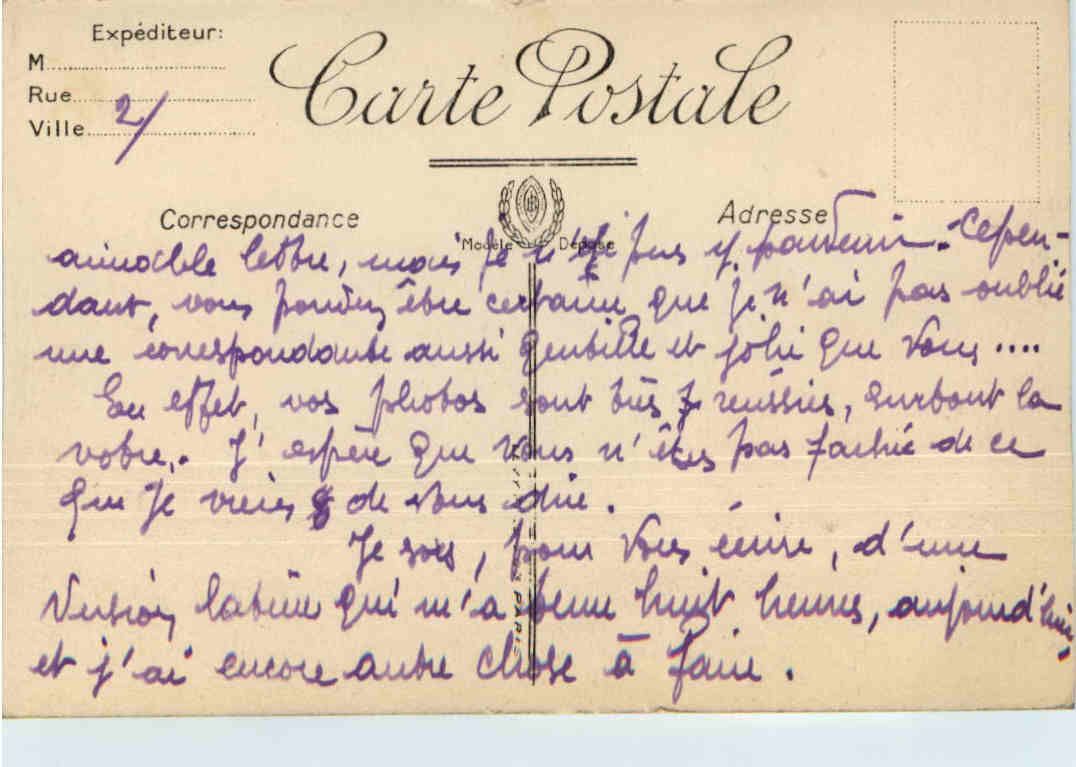 Expéditeur:
M
Rue
Ville
2/
Carte Postale
Correspondance
Adresse
Modèle Déposé
aimable lettre, mais je n'ai pus y parvenir. Cepen-
dant, vous pouvez être certaine que je n'ai pas oublié
une correspondante aussi gentille et jolie que vous....
En effet, vos photos sont très réussies, surtout la
votre. J'espère que vous n'êtes pas fachée de ce
que je viens de vous dire.
Je sors, pour vous écrire, d'une
version latine qui m'a tenu huit heures, aujourd'hui,
et j'ai encore autre chose à faire.
PARIS